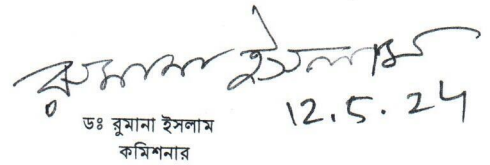 রুমানা ইসলাম
12.5.24
ডঃ রুমানা ইসলাম
কমিশনার